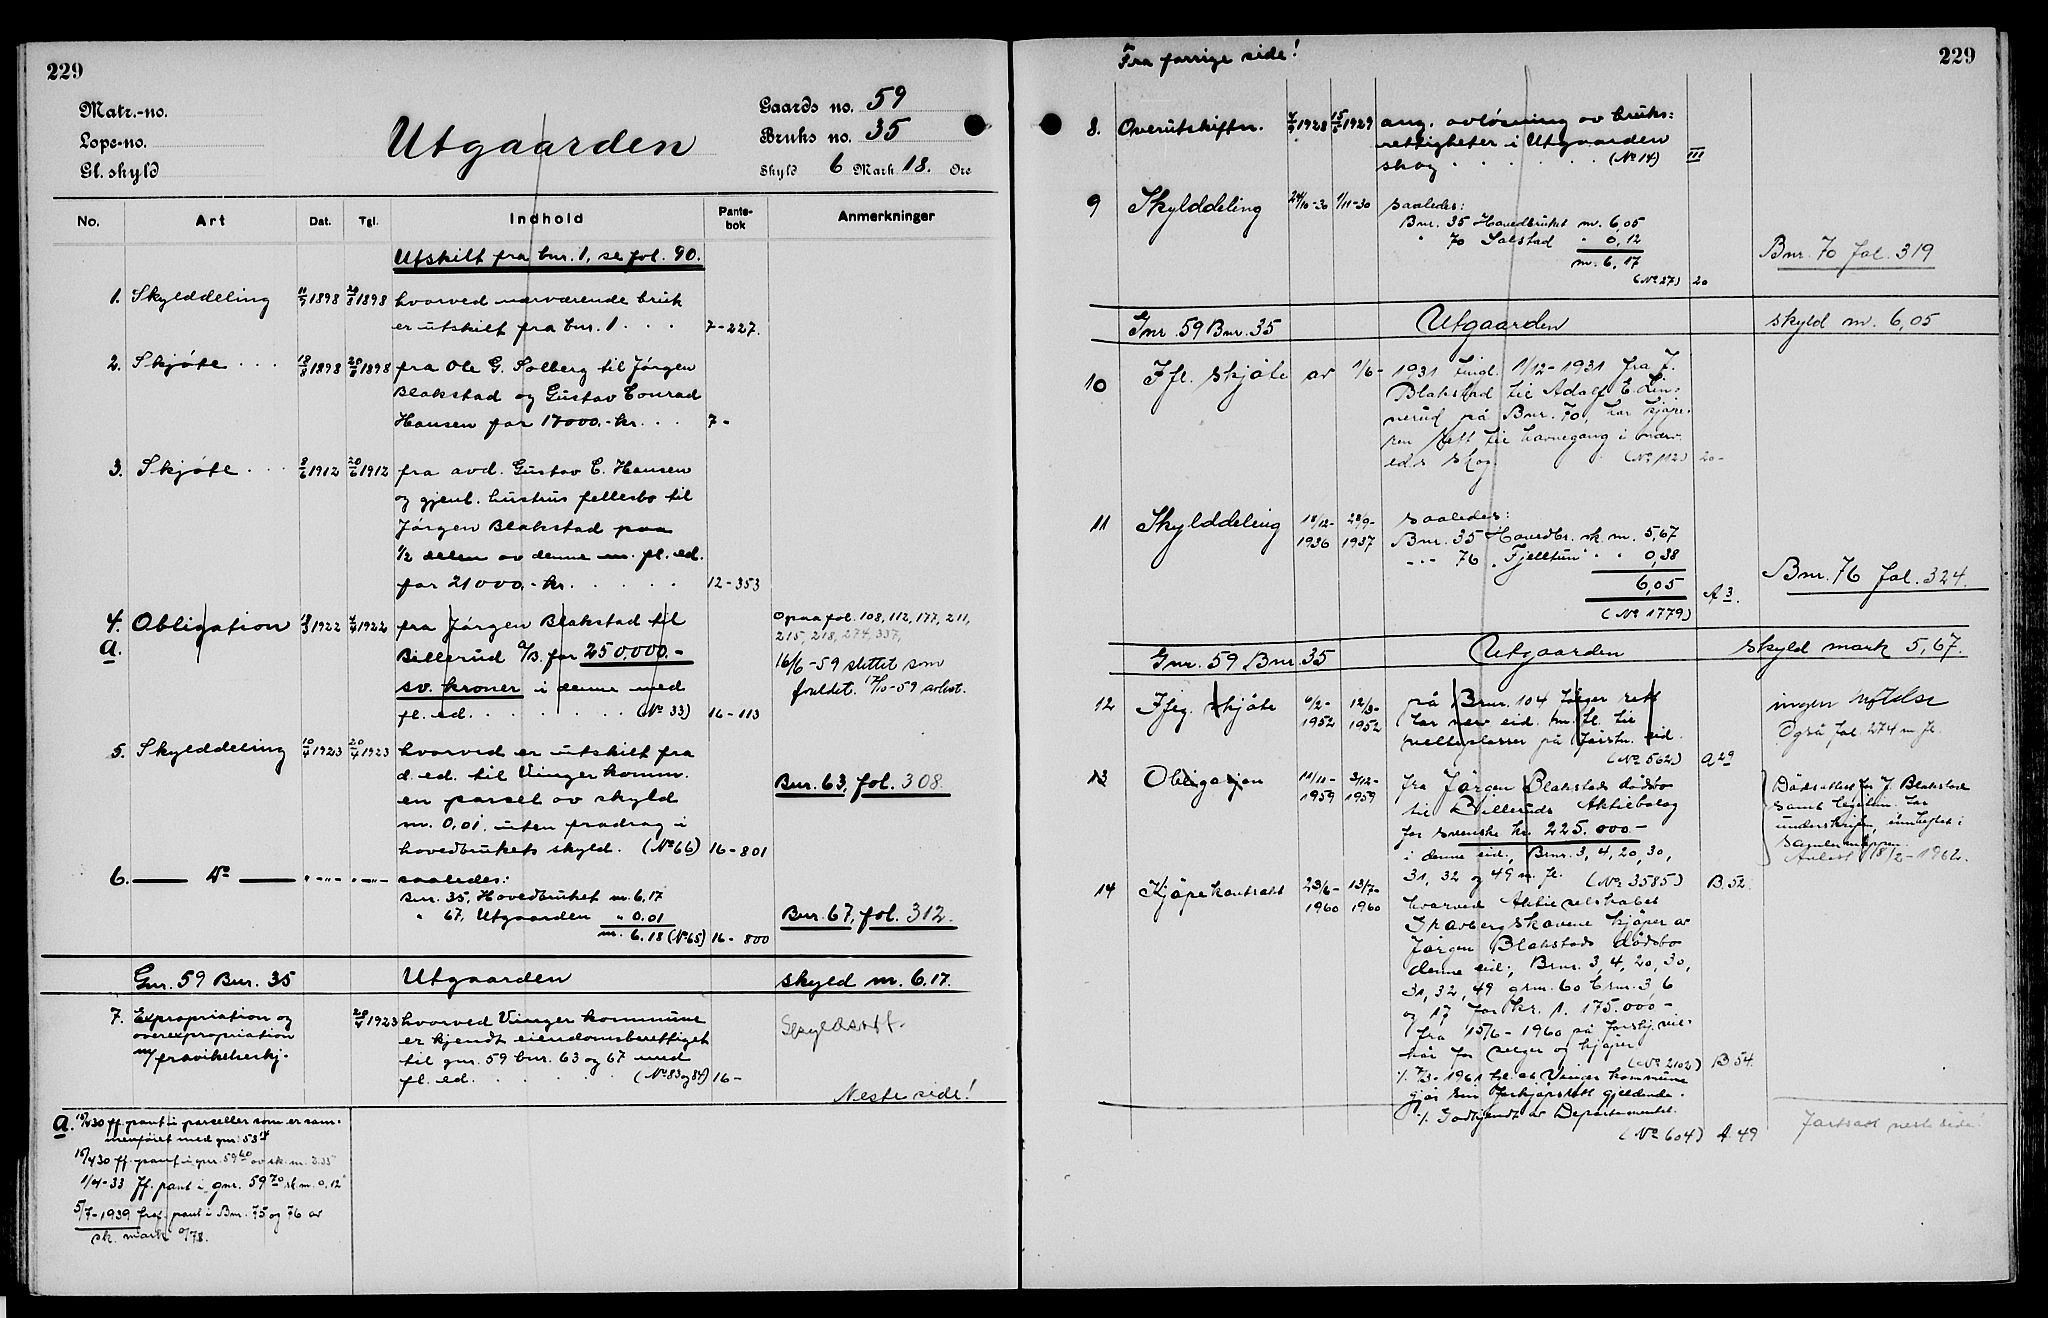 229
Matr.-no.
Løpe-no.
Gl. skyld
Utgaarden
Gaards no. 59
Bruks no. 35
Skyld 6 Mark 18. Øre
No. Art Dat. Tgl. Indhold Pante-bok Anmerkninger
Utskilt fra bnr. 1, se fol. 90.
1. Skylddeling 11/7 1898 20/8 1898 hvorved nærværende bruk
er utskilt fra bnr. 1 . . . 7-227.
2. Skjøte . . . 18/8 1898 20/8 1898 fra Ole G. Solberg til Jørgen
Blakstad og Gustav Conrad
Hansen for 17000.- kr. . . . 7-
3. Skjøte . . . 8/6 1912 20/6 1912 fra avd. Gustav C. Hansen
og gjenl. hustrus fellesbo til
Jørgen Blakstad paa
1/2 delen av denne m. fl. ed.
for 21000.- kr. . . . . . 12-353
4. Obligation 1922 1922 fra Jørgen Blakstad til
a.
Billerud A/B. for 250.000.-
sv. kroner i denne med
fl. ed. . . . . . . . (No 33) 16-113
Ogsaa fol. 108, 112, 177, 211,
215, 218, 274, 337,
16/6-59 slettet som
foreldet. 17/10-59 avlest.
5. Skylddeling 10/4 1923 20/4 1923 hvorved er utskilt fra
d. ed. til Vinger komm.
en parsel av skyld
m. 0,01. uten fradrag i
hovedbrukets skyld. (No 66) 16-801
Bnr. 63, fol. 308.
6. — Do — saaledes:
Bnr. 35, Hovedbruket m. 6,17
" 67, Utgaarden " 0.01
m. 6.18 (No 65) 16-800
Bnr. 67, fol. 312.
Gnr. 59 Bnr. 35 Utgaarden skyld m. 6.17.
7. Expropriation og 1923 hvorved Vinger kommune
overexpropriation er kjendt eiendomsberettiget
m/ fravikelseskj. til gnr. 59 bnr. 63 og 67 med
fl. ed. . . . . . . (No 83 og 84) 16-
Neste side!
a. 10/4 30 ff. pant i parseller som er sam-
menføiet med gnr. 53
10/4 30 ff. pant i gnr. 59 60 av sk. m. 3.35
1/4-33 ff. pant i gnr. 59 70 sk m. 0,12
5/7-1939 fraf. pant i Bnr. 75 og 76 av
sk. mark 0/78.
Fra forrige side!
229
8. Overutskiftn. 1928 15/6 1929 ang. avløsning av bruks:
rettigheter i Utgaarden
skog . . . . . . . (No 14) III
9 Skylddeling 24/10-30 1/11-30 saaledes:
Bnr. 35 Hovedbruket m. 6,05
" 70 Solstad " 0,12
m. 6,17
(No 27) 20
Bnr. 70 fol. 319
Gnr. 59 Bnr. 35 Utgaarden skyld m. 6,05
10 Ifl. skjøte av 1/6-1931 tingl. 1/12-1931 fra J.
Blakstad til Adolf E. Lin-
nerud på Bnr. 70, har kjøpe-
ren rett til havnegang i nærv.
ed.s skog. (No 112) 20-
11 Skylddeling 18/12-1936 28/9-1937 saaledes:
Bnr. 35 Hovedbr. sk. m. 5,67
" - " 76 "Fjelltun" " " 0,38
6,05
(No 1779) A 3.
Bnr. 76 fol. 324.
Gnr. 59 Bnr. 35 Utgaarden skyld mark 5,67.
12 Iflg. skjøte 6/2-1952 12/3-1952 på Bnr. 104 følger rett
for nærv. eid. m. fl. til
velteplasser på eid.
(No 562) A 29
ingen heftelse
Også fol. 274 m. fl.
13 Obligasjon 11/11-1959 3/12-1959 fra Jørgen Blakstads dødsbo
til Billeruds Aktiebolag
for svenske kr. 225.000-
i denne eid., Bnr. 3, 4, 20, 30,
31, 32 og 49 m. fl. (No 3585) B. 52.
Dødsattest for J. Blakstad
samt legitim. for
underskrift, innheftet i
Samlemappen.
Avlest 18/2-1962.
14 Kjøpekontrakt 23/6-1960 13/7-1960 hvorved Aktieselskabet
Skarbergskovene kjøper av
Jørgen Blakstads dødsbo
denne eid., Bnr. 3, 4, 20, 30,
31, 32, 49 gnr. 60 bnr. 3, 6
og 17 for kr. 1.175.000-
fra 15/6-1960 på forskj. vil-
kår for selger og kjøper
(No 2102) B 54.
1/3-1961 Vinger kommune
gjør sin forkjøpsrett gjeldende.
Godkjendt av Departementet.
(No 604) A. 49
Fortsatt neste side!